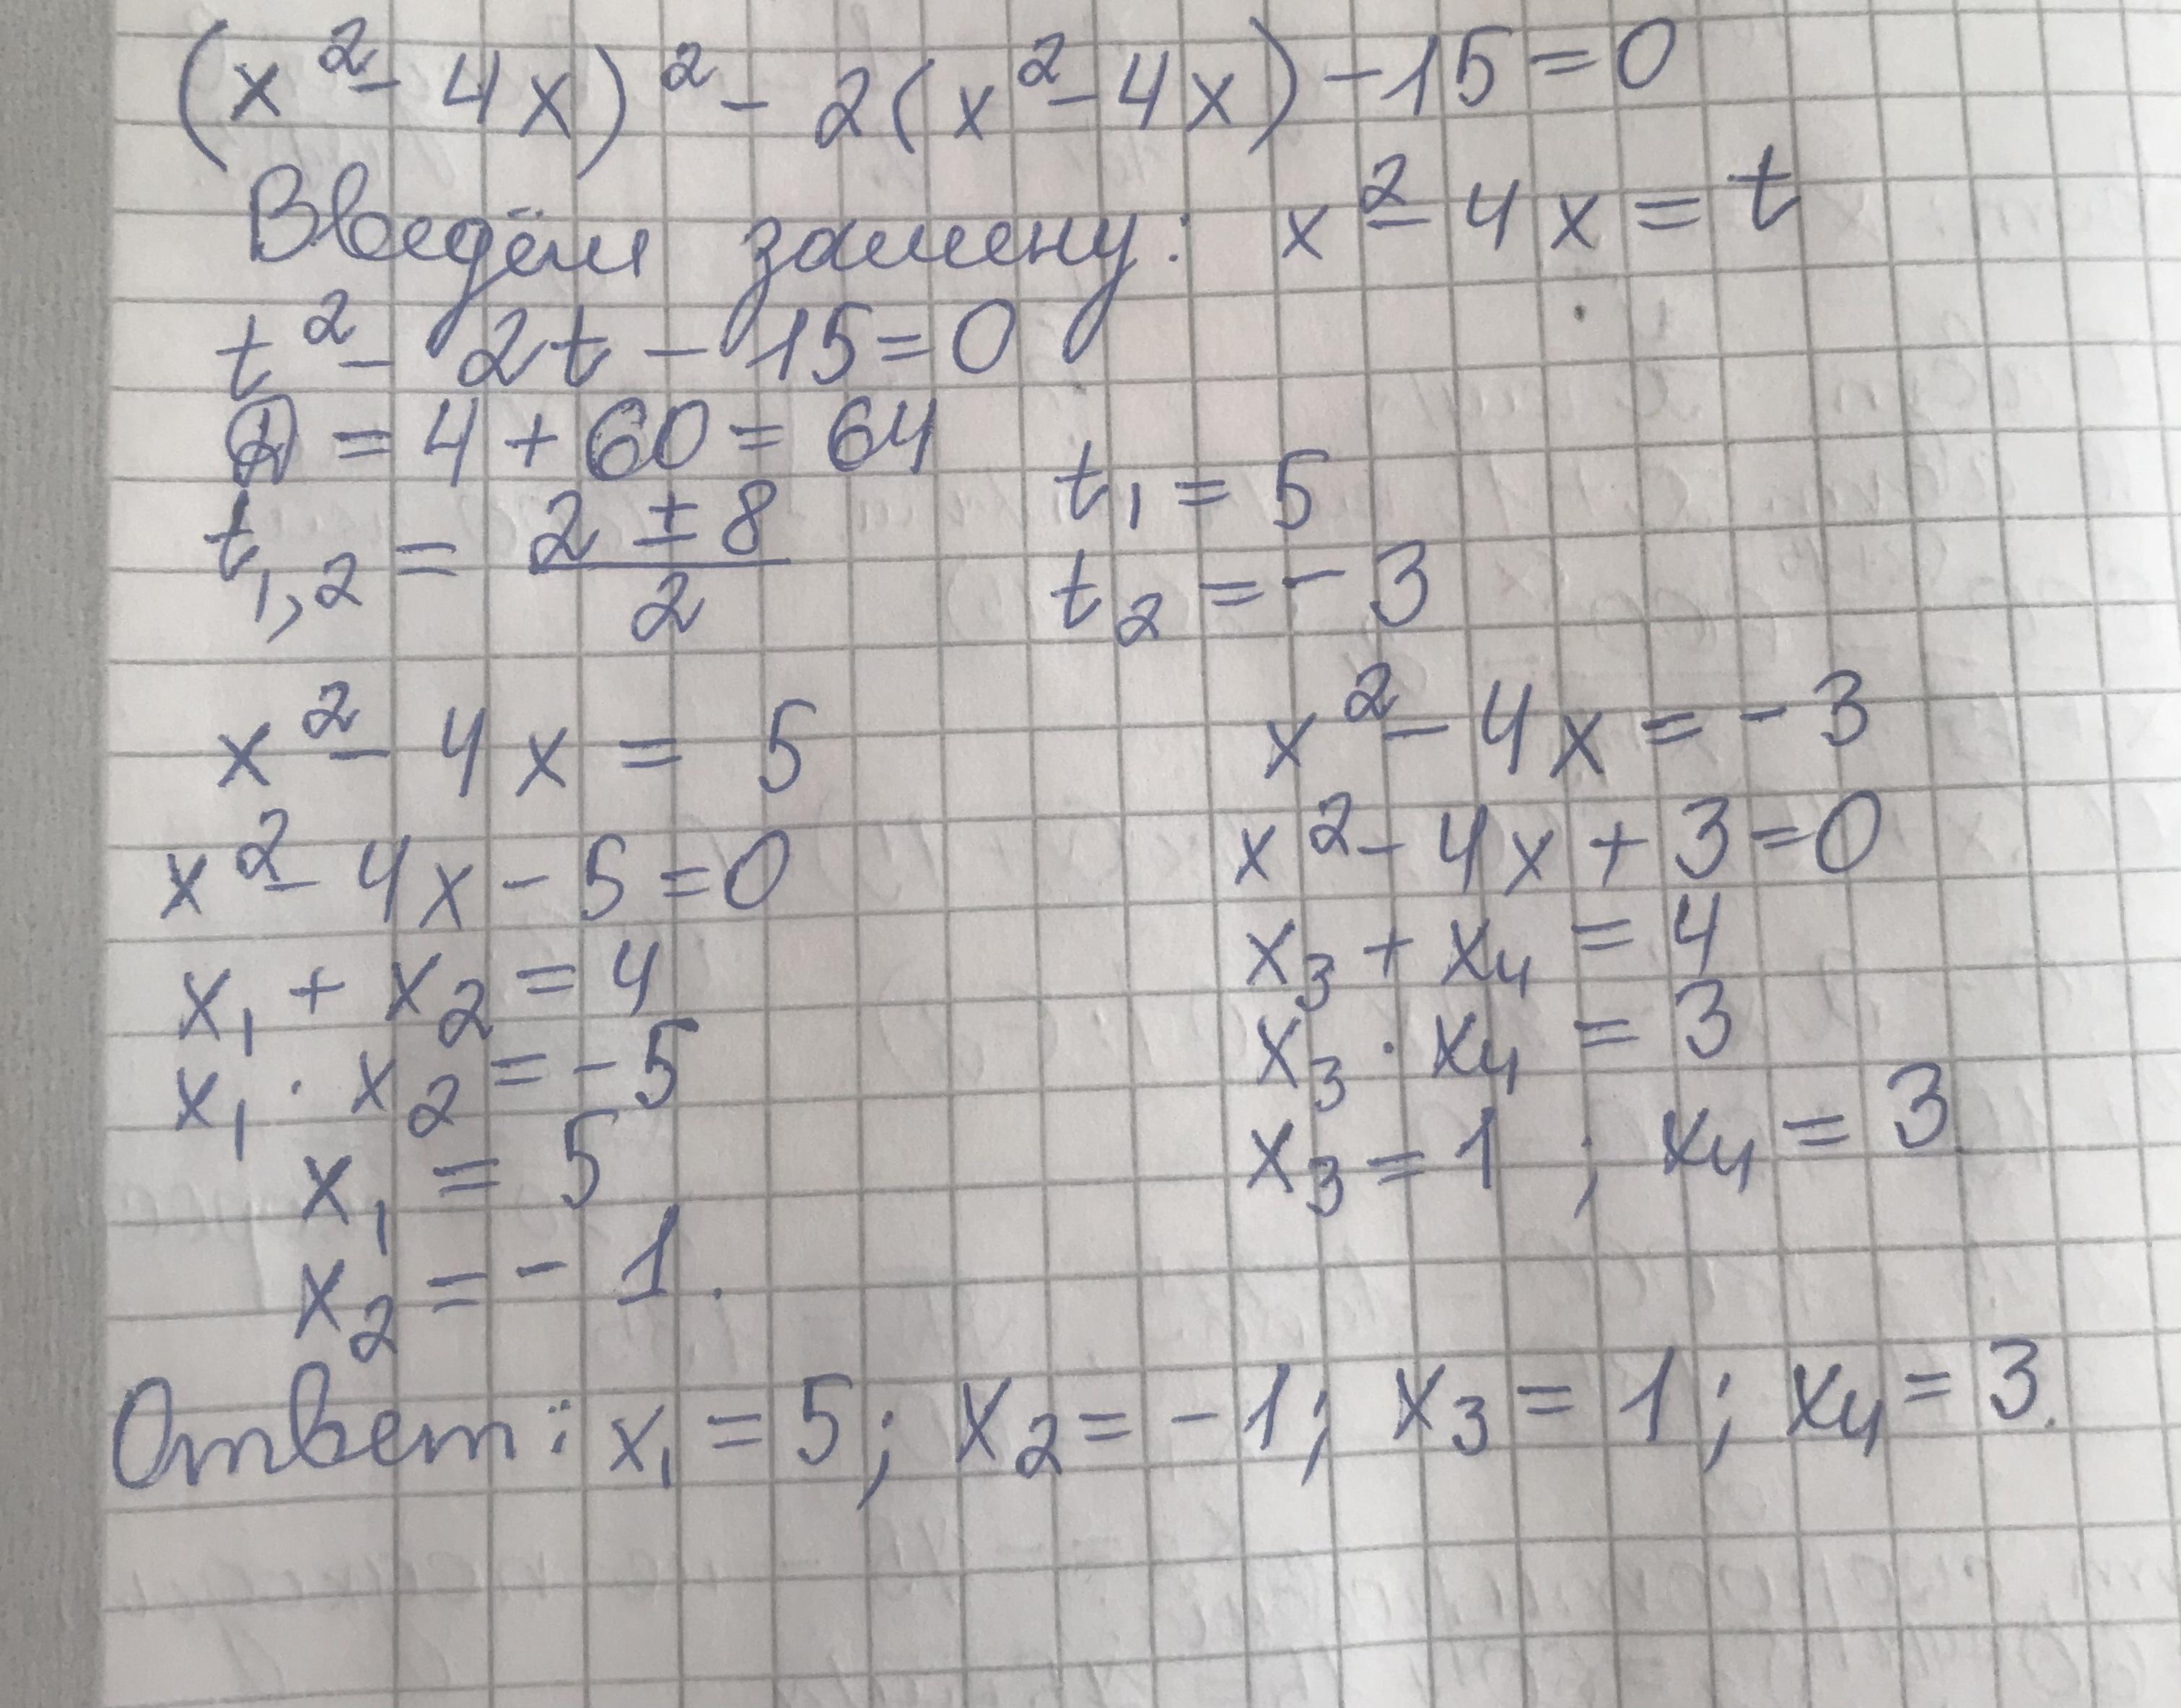 (x² - 4x)² - 2(x² - 4x) - 15 = 0
Введём замену: x² - 4x = t
t² - 2t - 15 = 0
D = 4 + 60 = 64
t₁,₂ = (2 ± 8)/2
t₁ = 5
t₂ = - 3
x² - 4x = 5
x² - 4x - 5 = 0
x₁ + x₂ = 4
x₁ · x₂ = - 5
x₁ = 5
x₂ = - 1.
x² - 4x = - 3
x² - 4x + 3 = 0
x₃ + x₄ = 4
x₃ · x₄ = 3
x₃ = 1 ; x₄ = 3.
Ответ: x₁ = 5; x₂ = - 1; x₃ = 1; x₄ = 3.